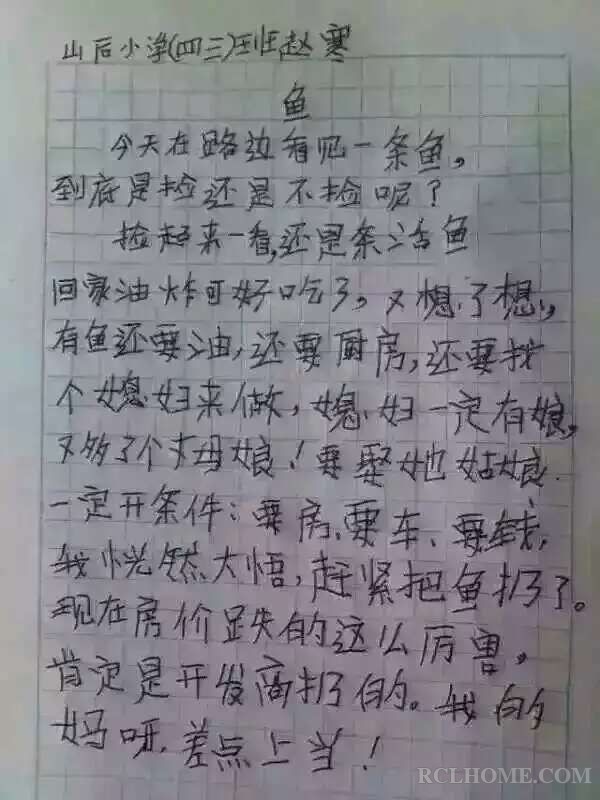 山后小学(四三)班赵寒
鱼
今天在路边看见一条鱼,
到底是捡还是不捡呢?
捡起来一看,还是条活鱼
回家油炸可好吃了,又想了想,
有鱼还要油,还要厨房,还要找
个媳妇来做,媳妇一定有娘,
又多了个丈母娘!要娶她姑娘
一定开条件:要房、要车、要钱,
我恍然大悟,赶紧把鱼扔了。
现在房价跌的这么厉害,
肯定是开发商扔的。我的
妈呀,差点上当!
RCLHOME.COM